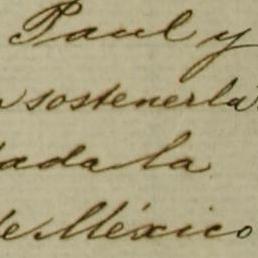 Paul y
sostenerla
dada la
de México